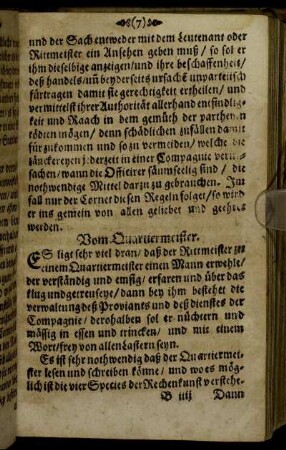 (7)
und der Sach entweder mit dem Leutenans oder
Rittmeister ein Ansehen geben muß / so sol er
ihm dieselbe anzeigen/ und ihre beschaffenheit/
deß handels/ uñ beyderseits ursach unparteiisch
fürtragen damit sie gerechtigkeit ertheilen/ und
vermittelst ihrer Authoritåt allerhand entzündlig-
keit und Raach in dem gemüth der partheyen
tödten mögen/ denn schådlichen zufällen damit
fürzukommen und so zu vermeiden/ welche die
zånckereyen jederzeit in einer Compagnie veru-
sachen/ wann die Officirer såumseelig sind / die
nothwendige Mittel darzu zu gebrauchen. Im
fall nur der Cornet diesen Regeln folget/ so wird
er ins gemein von allen geliebet und geehret
werden.
Vom Quartiermeister.
ES ligt sehr viel dran/ daß der Rittmeister zu
einem Quartiermeister einen Mann erwehle/
der verståndig und emsig/ erfaren und über das
klug und getreu seye/ dann bey ihm bestehet die
verwaltung deß Proviants und deß dienstes der
Compagnie/ derohalben sol er nüchtern und
måssig in essen und trincken/ und mit einem
Wort/ frey von allen Lastern seyn.
Es ist sehr nothwendig daß der Quartiermei-
ster lesen und schreiben könne/ und wo es mög-
lich ist die vier Species der Rechenkunst verstehe.
B iiij Dann